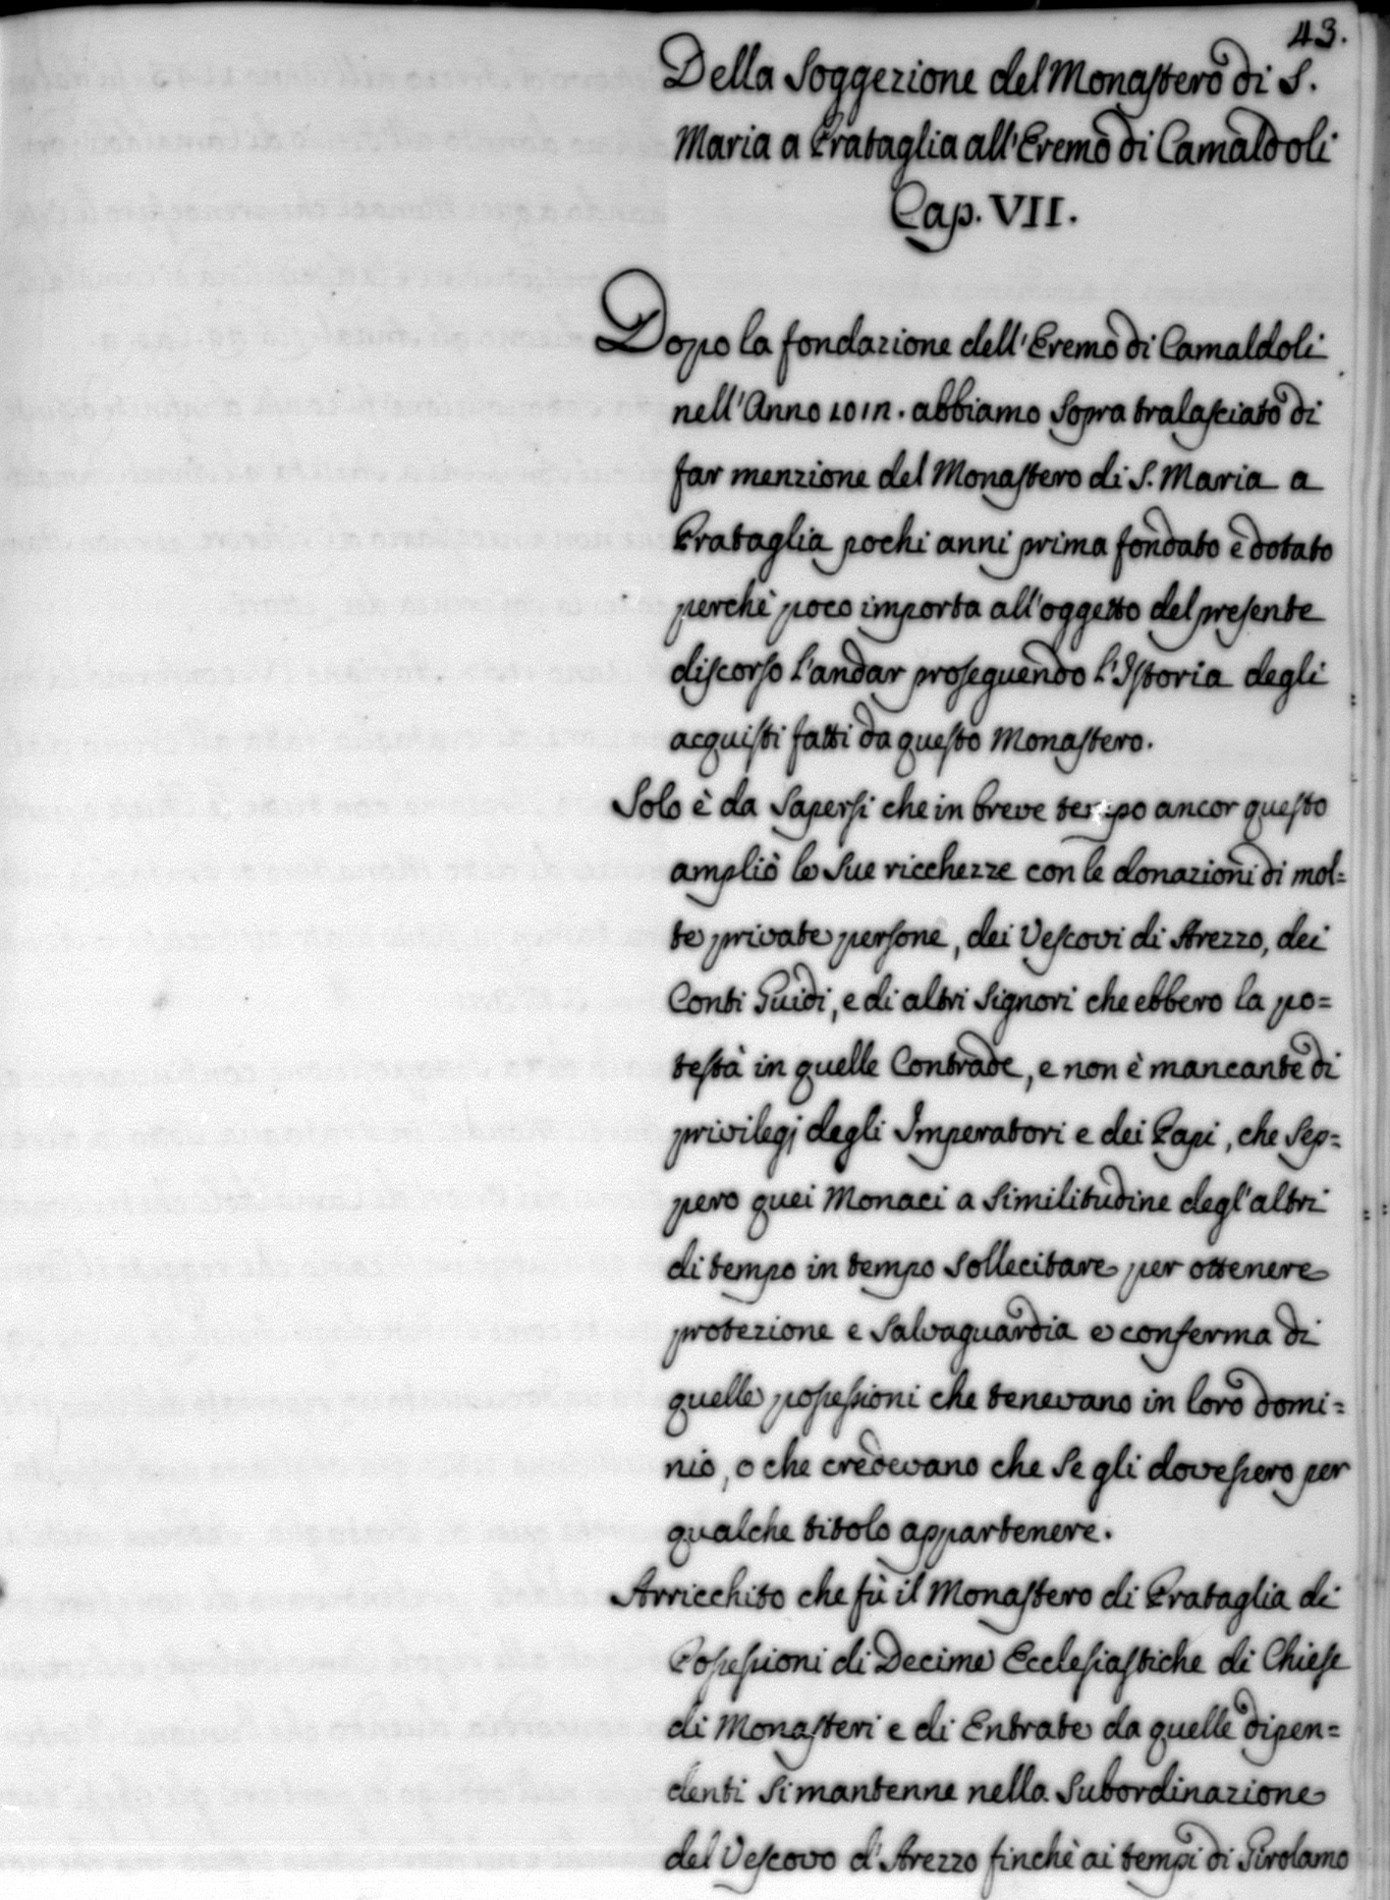 43.
Della Soggezione del Monastero di S.
Maria a Prataglia all'Eremo di Camaldoli
Cap. VII.
Dopo la fondazione dell'Eremo di Camaldoli
nell'Anno 1012. abbiamo sopra tralasciato di
far menzione del Monastero di S. Maria a
Prataglia pochi anni prima fondato e dotato
perchè poco importa all'oggetto del presente
discorso l'andar proseguendo l'Istoria degli
acquisti fatti da questo Monastero.
Solo è da Sapersi che in breve tempo ancor questo
ampliò le Sue ricchezze con le donazioni di mol=
te private persone, dei Vescovi di Arezzo, dei
Conti Guidi, e di altri Signori che ebbero la po=
testà in quelle Contrade, e non è mancante di
privilegj degli Imperatori e dei Papi, che Sep=
pero quei Monaci a Similitudine degl'altri
di tempo in tempo Sollecitare per ottenere
protezione e Salvaguardia e conferma di
quelle possessioni che tenevano in loro domi=
nio, o che credevano che Se gli dovessero per
qualche titolo appartenere.
Arricchito che fù il Monastero di Prataglia di
Possessioni di Decime Ecclesiastiche di Chiese
di Monasteri e di Entrate da quelle dipen=
denti Si mantenne nella Subordinazione
del Vescovo d'Arezzo finchè ai tempi di Girolamo